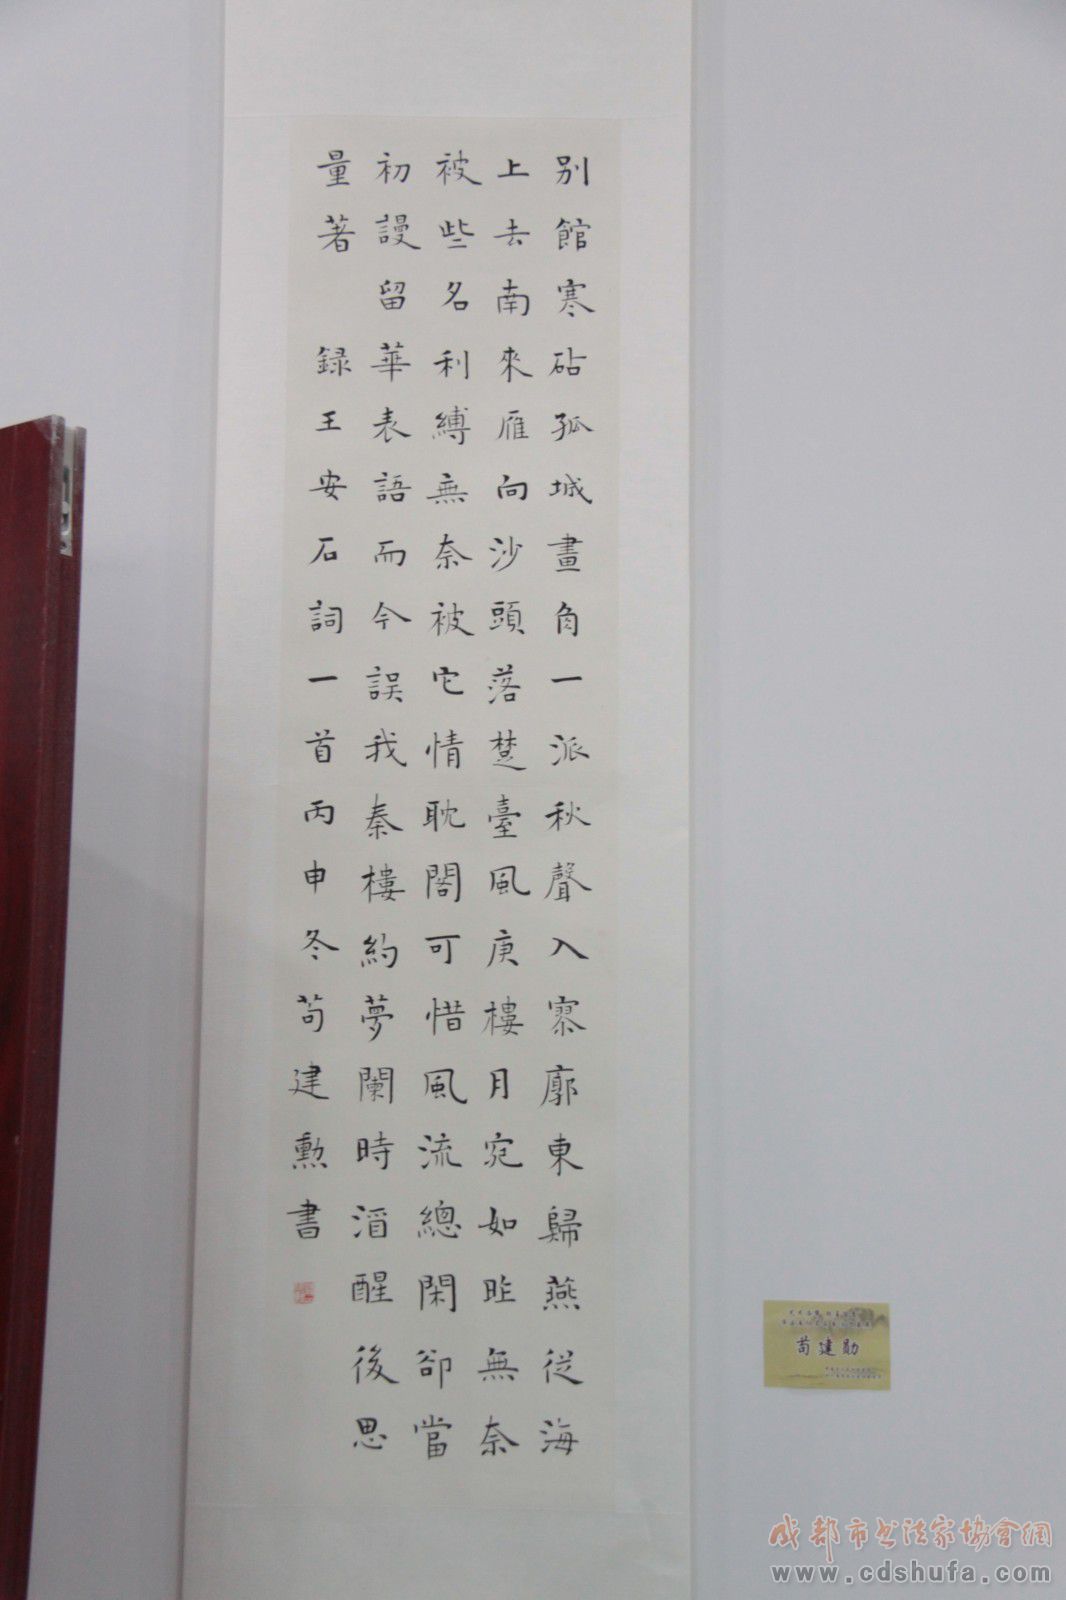 别館寒砧孤城畫角一派秋聲入寥廓東歸燕從海
上去南來雁向沙頭落楚臺風庚樓月宛如昨無奈
被些名利縛無奈被它情耽閣可惜風流總閑卻當
初謾留華表語而今誤我秦樓約夢闌時酒醒後思
量著 録王安石詞一首丙申冬苟建勲書
苟建勋
成都市书法家协會網
www.cdshufa.com